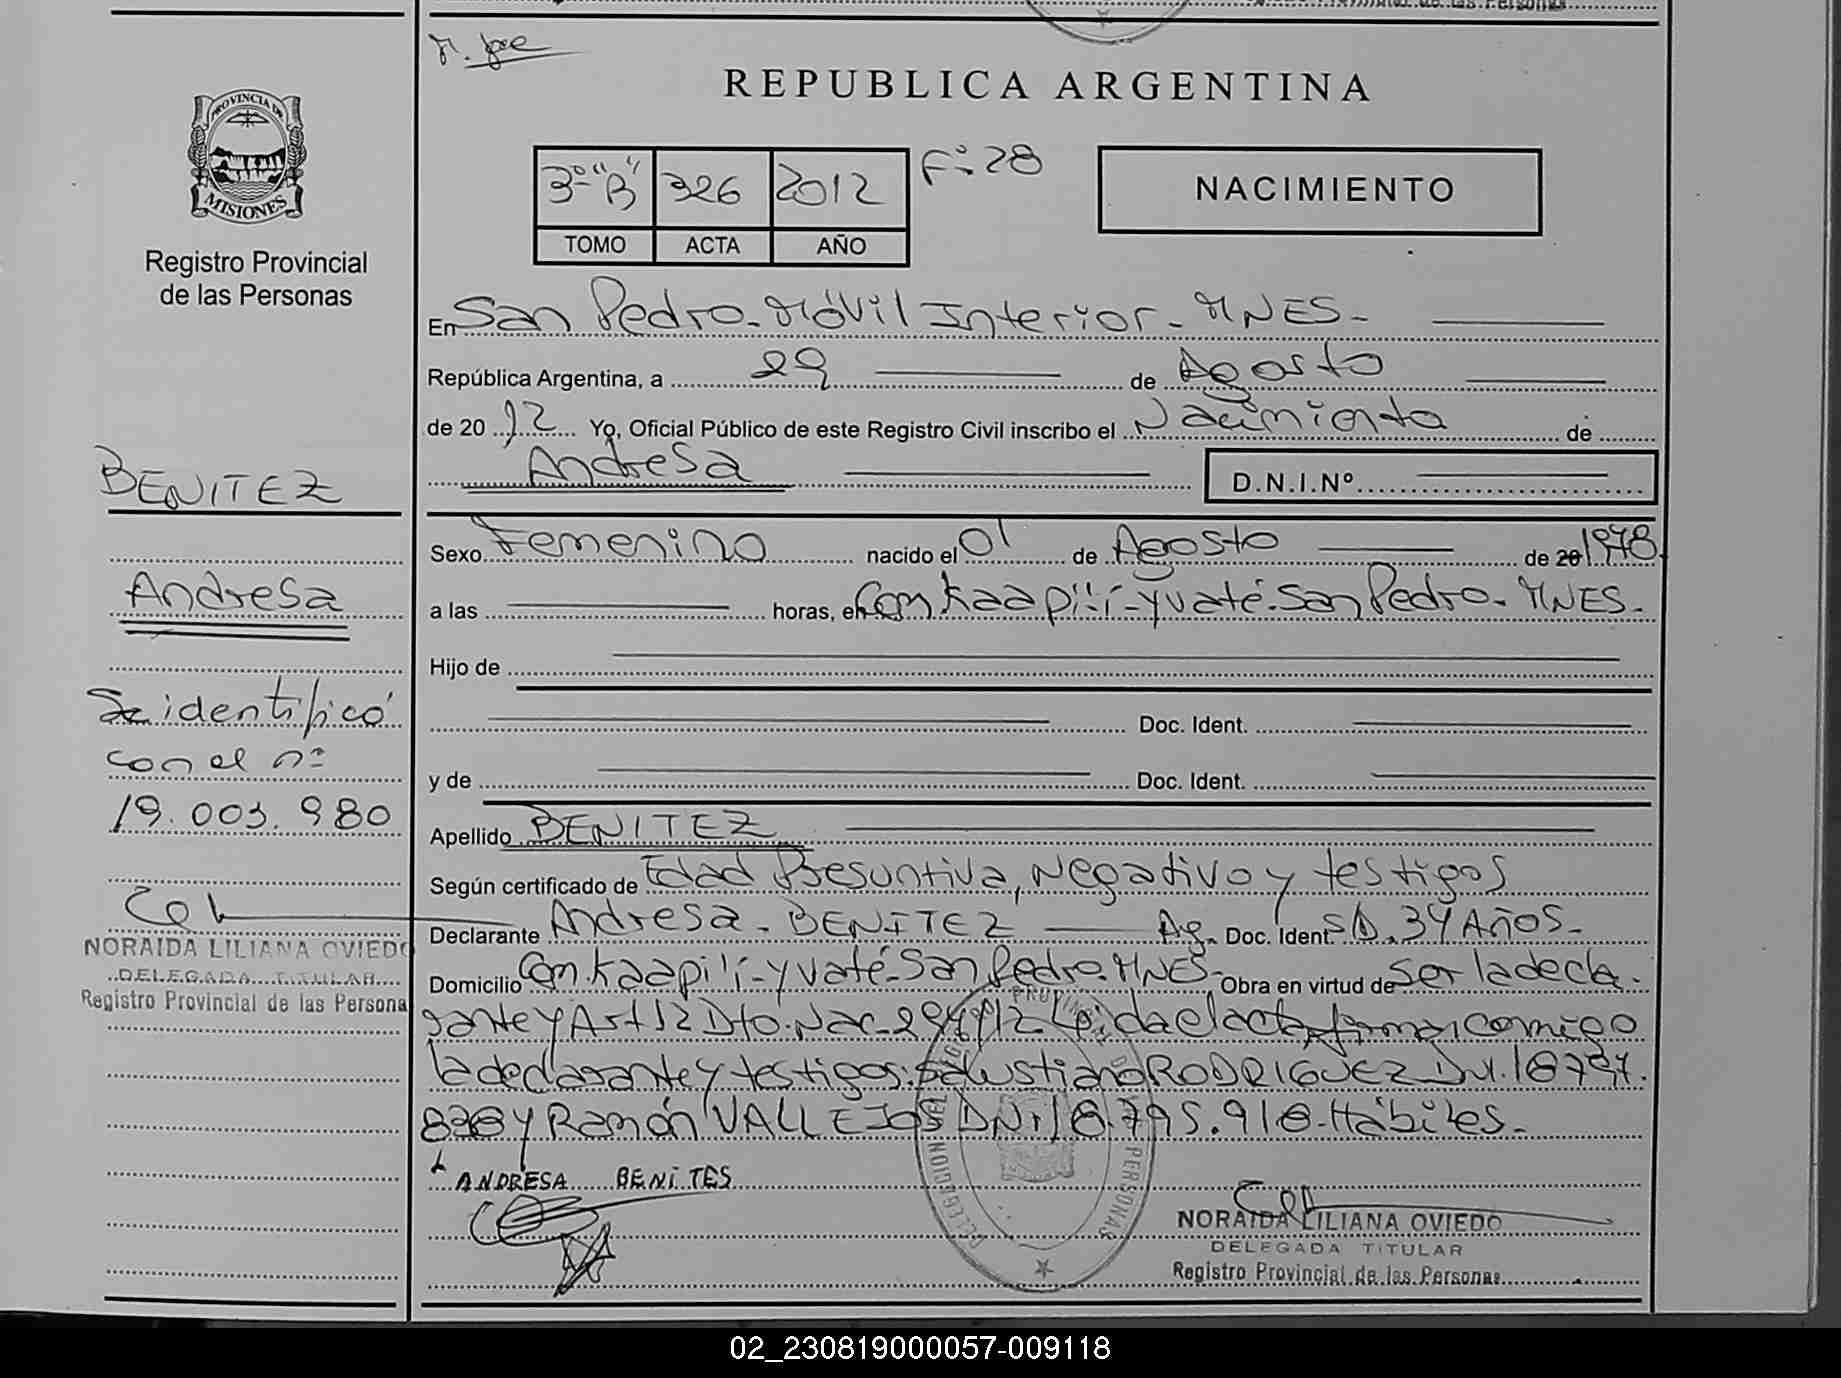 REPUBLICA ARGENTINA
PROVINCIA DE
MISIONES
Registro Provincial
de las Personas
3º "B" 326 2012 Fº: 28
TOMO ACTA AÑO
NACIMIENTO
En San Pedro - Móvil Interior - MNES -
República Argentina, a 29 de Agosto
de 2012 Yo, Oficial Público de este Registro Civil inscribo el Nacimiento de
Andresa D.N.I.Nº
BENITEZ
Andresa
Se identificó
con el nº
19.003.980
NORAIDA LILIANA OVIEDO
DELEGADA TITULAR
Registro Provincial de las Persona
Sexo Femenino nacido el 01 de Agosto de 20 1978
a las horas, en Com. Kaapi'i - yvaté - San Pedro - MNES -
Hijo de
Doc. Ident.
y de Doc. Ident.
Apellido BENITEZ
Según certificado de Edad Presuntiva, Negativo y testigos
Declarante Andresa - BENITEZ Ag. Doc. Ident. S/D. 34 Años -
Domicilio Com. Kaapi'i - yvaté - San Pedro - MNES - Obra en virtud de ser la decla-
rante y Art 12 Dto. Nac. da el acta, firman conmigo
la declarante y testigos: Salustiano RODRIGUEZ
y Ramón VALLEJOS DNI 18.795.918 - Hábiles -
ANDRESA BENITES
DELEGACION DEL PROVINCIAL PERSONAS
NORAIDA LILIANA OVIEDO
DELEGADA TITULAR
Registro Provincial de las Personas
02_230819000057-009118